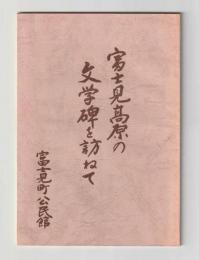 富士見高原の
文学碑を訪ねて
富士見町公民館